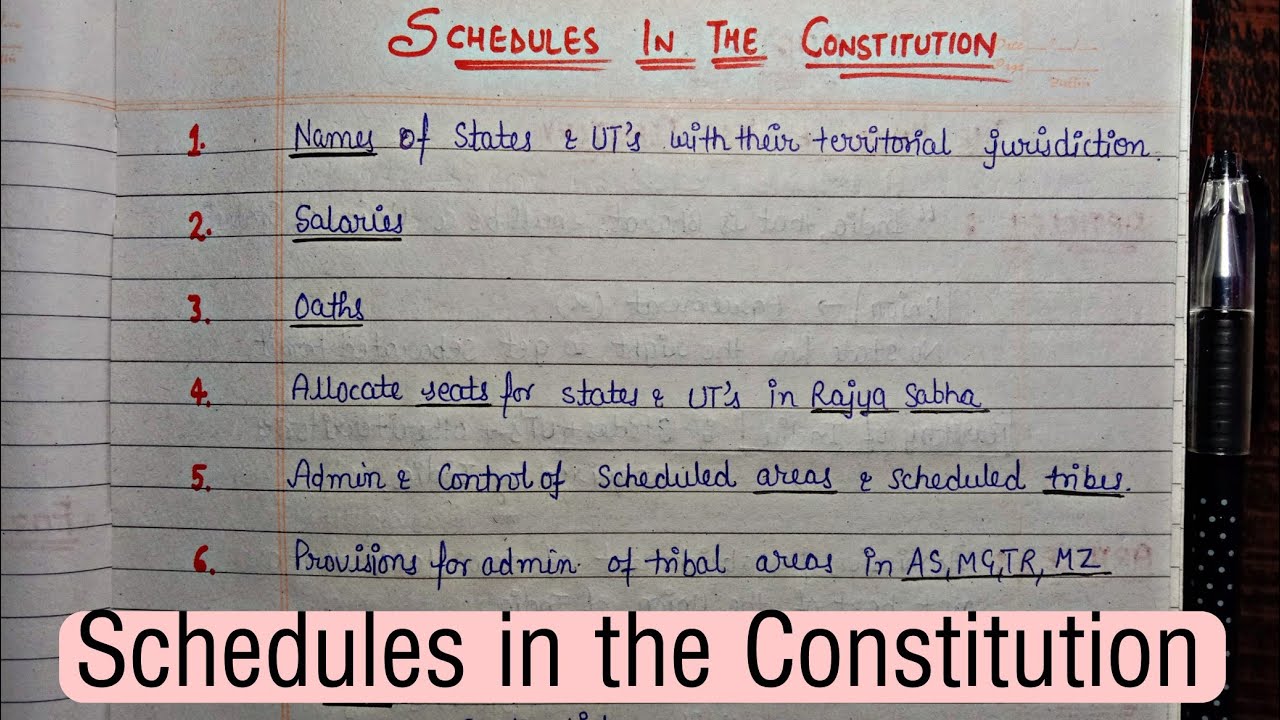 SCHEDULES IN THE CONSTITUTION
1. Names of States & UT's with their territorial jurisdiction.
2. Salaries
3. Oaths
4. Allocate seats for states & UT's in Rajya Sabha
5. Admin & Control of Scheduled areas & scheduled tribes.
6. Provisions for admin. of tribal areas in AS, MG, TR, MZ
Schedules in the Constitution